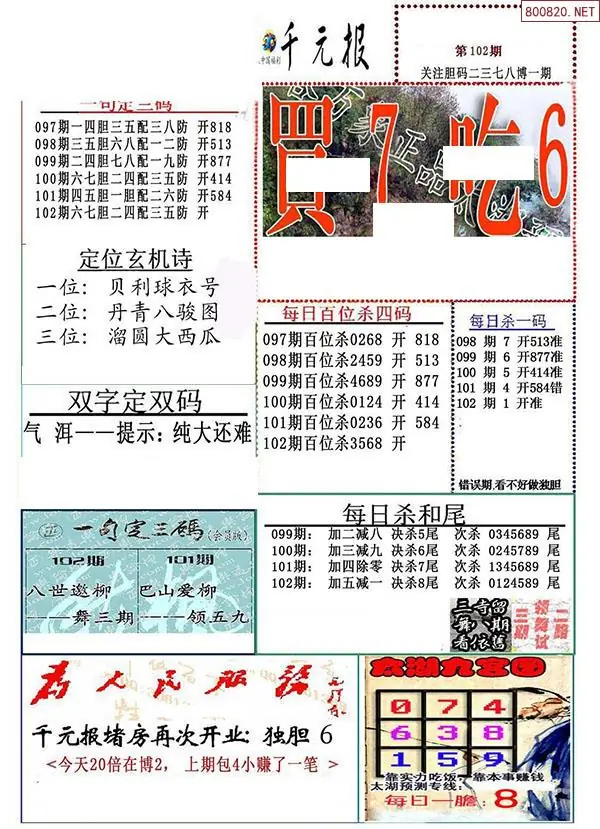 800820.NET
千元报
中国福彩
第102期
关注胆码二三七八博一期
一句定三码
097期一四胆三五配三八防 开818
098期三五胆六八配一二防 开513
099期二四胆七八配一九防 开877
100期六七胆二四配三五防 开414
101期四五胆一胆二六防 开584
102期六七胆二四配三五防 开
買 7 吃 6
定位玄机诗
一位: 贝利球衣号
二位: 丹青八骏图
三位: 溜圆大西瓜
每日百位杀四码
097期百位杀0268 开 818
098期百位杀2459 开 513
099期百位杀4689 开 877
100期百位杀0124 开 414
101期百位杀0236 开 584
102期百位杀3568 开
每日杀一码
098 期 7 开513准
099 期 6 开877准
100 期 5 开414准
101 期 4 开584错
102 期 1 开准
错误期,看不好做独胆
双字定双码
气 洱——提示: 纯大还难
一句定三碼(会员版)
102期 101期
八世邀柳 巴山爱柳
——舞三期 ——领五九
每日杀和尾
099期: 加二减八 决杀5尾 次杀 0345689 尾
100期: 加三减九 决杀6尾 次杀 0245789 尾
101期: 加四除零 决杀7尾 次杀 1345689 尾
102期: 加五减一 决杀8尾 次杀 0124589 尾
三奇留
舞八期
看依舊
二路
领舞试
三期
為人民服務
千元报堵房再次开业: 独胆 6
<今天20倍在博2, 上期包4小赚了一笔 >
太湖九宫图
0 7 4
6 3 8
1 5 9
靠实力吃饭 靠本事赚钱
太湖预测专线:
每日一胆: 8